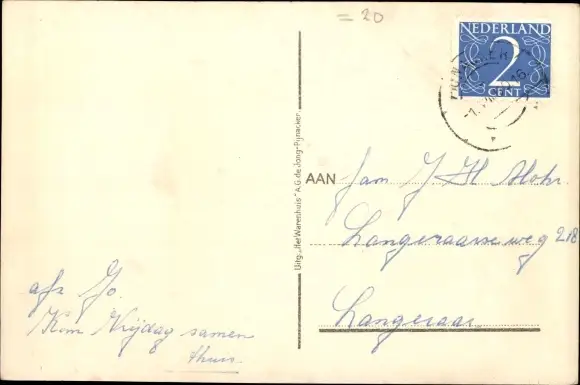 = 20
NEDERLAND
2
CENT
Uitg. „Het Warenhuis" A.G. de Jong-Pijnacker
AAN Fam J. H. Mohr.
Langeraarseweg 218
Langeraar
afz Jo.
Kom Vrijdag samen
thuis